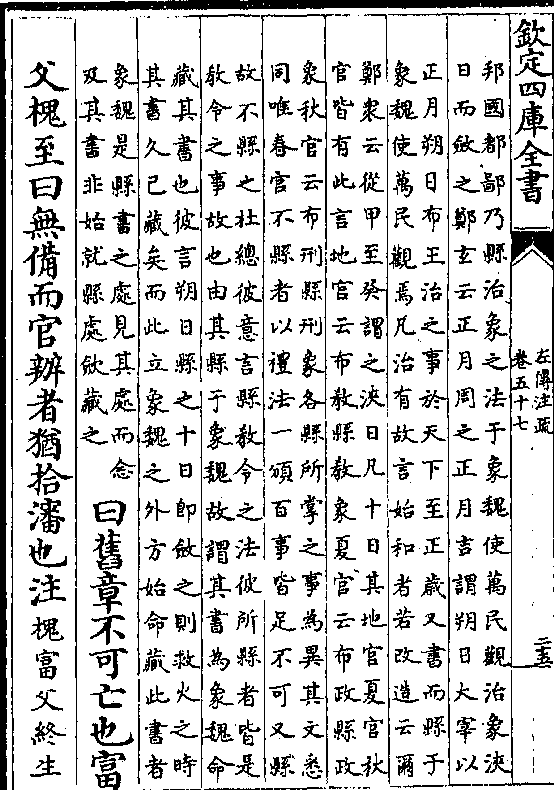 欽定四庫全書
左傳注疏
卷五十七
邦國都鄙乃縣治象之法于象魏使萬民觀治象浹
日而斂之鄭玄云正月周之正月吉謂朔日大宰以
正月朔日布王治之事於天下至正歲又書而縣于
象魏使萬民觀焉凡治有故言始和者若改造云爾
鄭衆云從甲至癸謂之浹日凡十日其地官夏官秋
官皆有此言地官云布教縣教象夏官云布政縣政
象秋官云布刑縣刑象各縣所掌之事為異其文悉
同唯春官不縣者以禮法一頒百事皆足不可又縣
故不縣之杜總彼意言縣教令之法彼所縣者皆是
教令之事故也由其縣于象魏故謂其書為象魏命
藏其書也彼言朔日縣之十日即斂之則救火之時
其書久已藏矣而此立象魏之外方始命藏此書者
象魏是縣書之處見其處而念
及其書非始就縣處斂藏之
曰舊章不可亡也富
父槐至曰無備而官辨者猶拾瀋也注槐富父終生